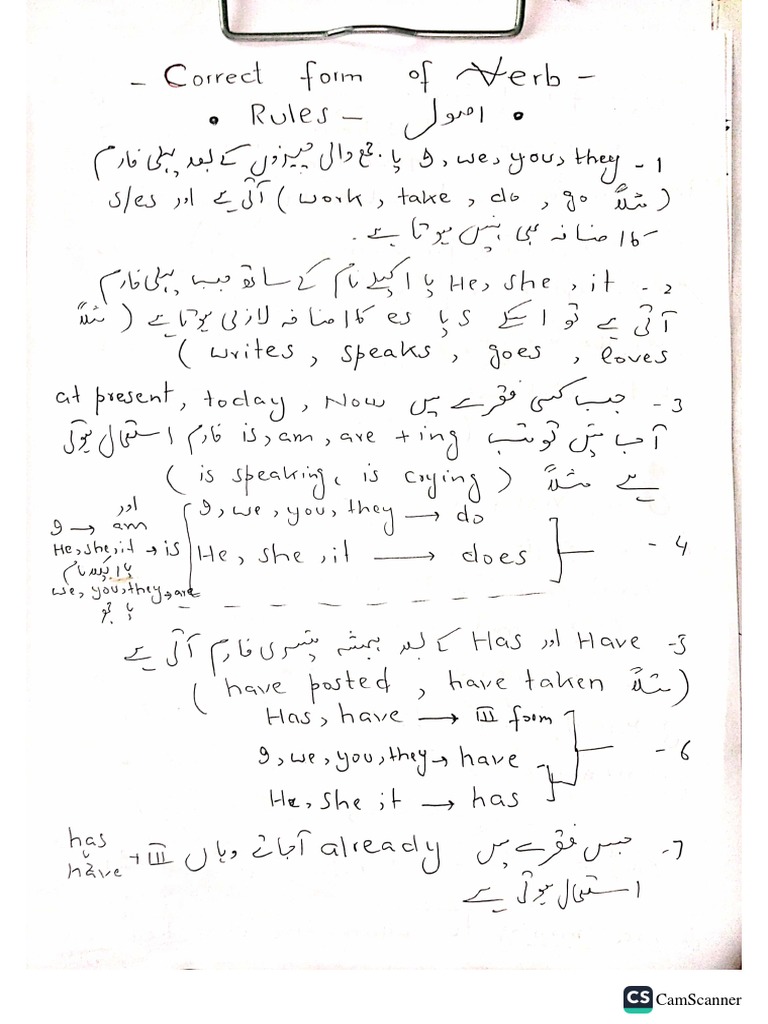 - Correct form of Verb -
• Rules - اصول •
1- I, we, you, they یا جمع والی چیزوں کے بعد پہلی فارم
آتی ہے اور s/es (work, take, do, go مثلاً)
کا اضافہ بھی نہیں ہوتا ہے۔
2- He, she, it یا اکیلے نام کے ساتھ جب پہلی فارم
آتی ہے تو اسکے s یا es کا اضافہ لازمی ہوتا ہے (مثلاً
writes, speaks, goes, loves)
3- جب کسی فقرے میں at present, today, Now
آجائیں تو تب is, am, are +ing فارم استعمال ہوتی
ہے مثلاً (is speaking, is crying)
4- I, we, you, they → do
He, she, it → does
اور
I → am
He, she, it → is
یا اکیلا نام
we, you, they → are
یا جمع
5- Have اور Has کے بعد ہمیشہ تیسری فارم آتی ہے
(مثلاً have posted, have taken)
6- Has, have → III form
I, we, you, they → have
He, she it → has
7- جس فقرے میں already آجائے وہاں has یا have + III
استعمال ہوتی ہے
CS CamScanner